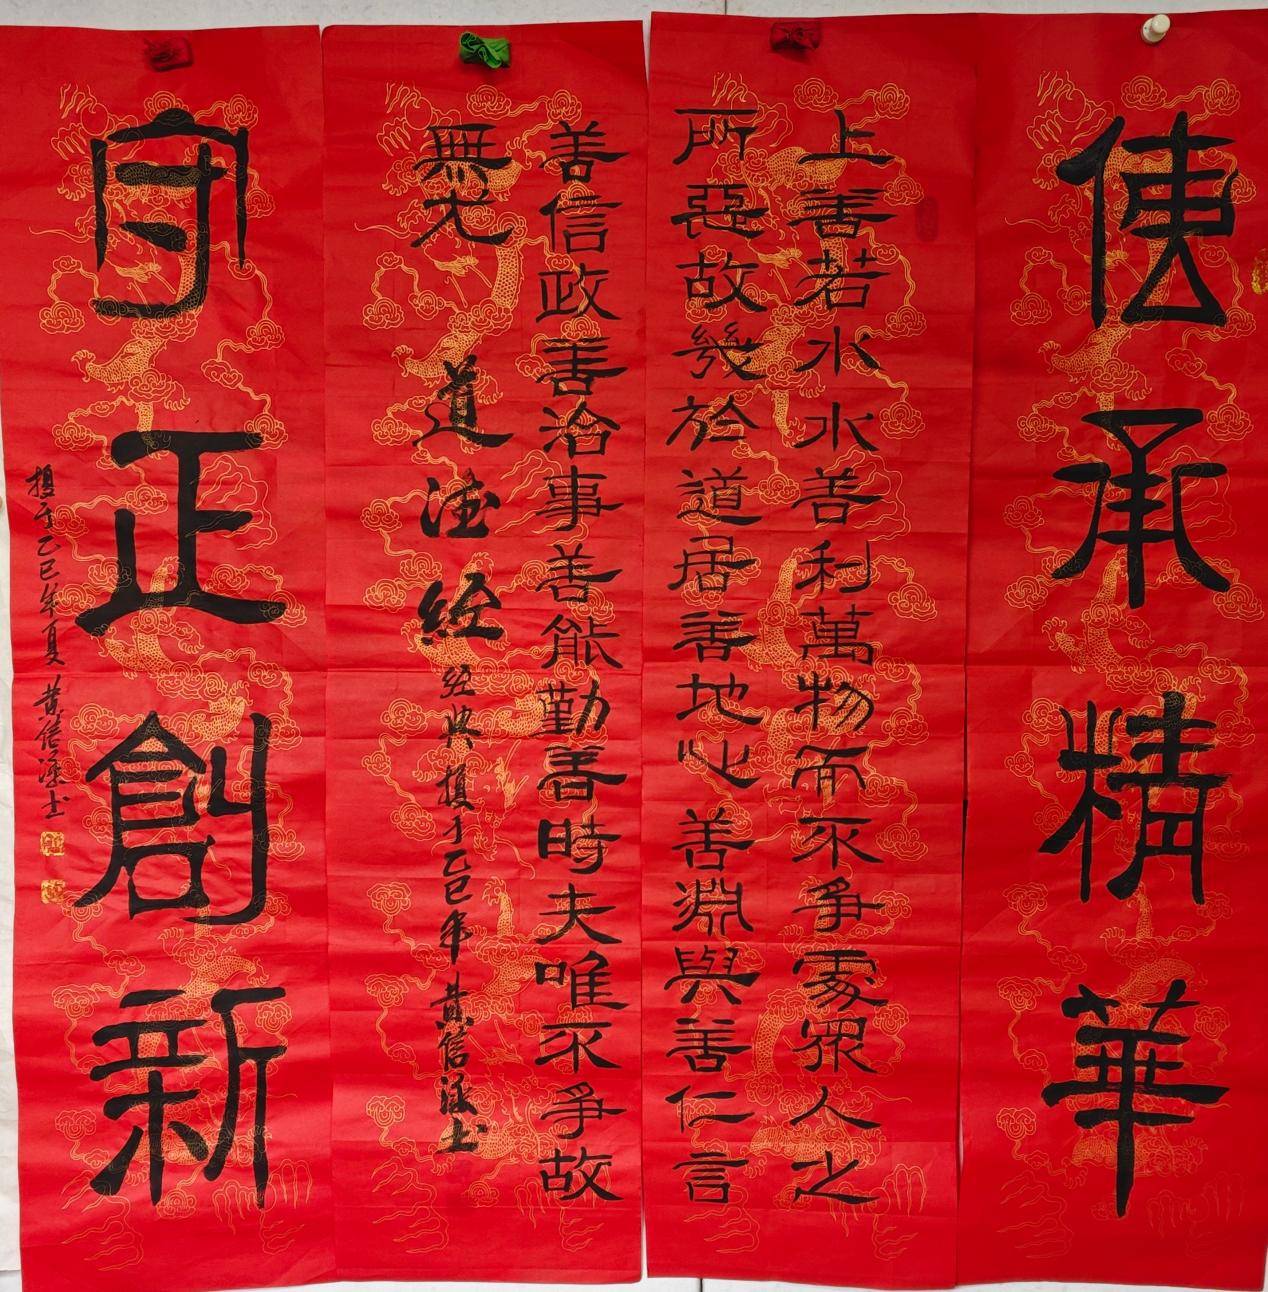 使承精華
上善若水水善利萬物而不爭處眾人之
所惡故幾於道居善地心善淵與善仁言
善信政善治事善能勤善時夫唯不爭故
無尤
道德經
经典撰于乙巳年黄信涵书
守正創新
撰于乙巳年夏 黄信涵书